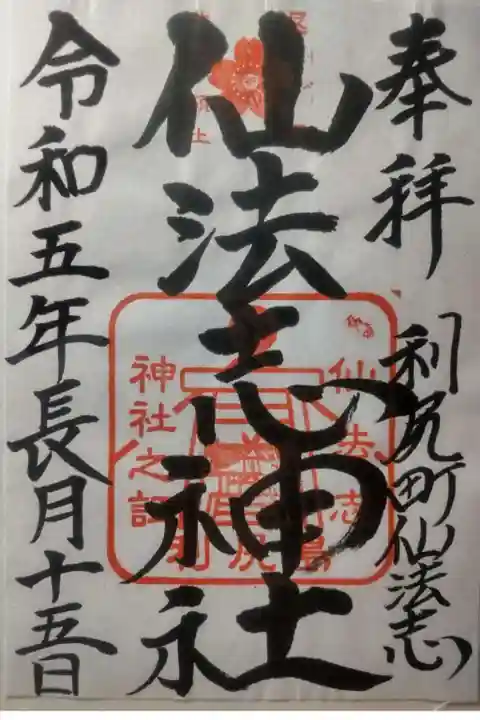 奉拝
利尻町仙法志
仙法志神社
仙法志
神社之証
利尻島
令和五年長月十五日